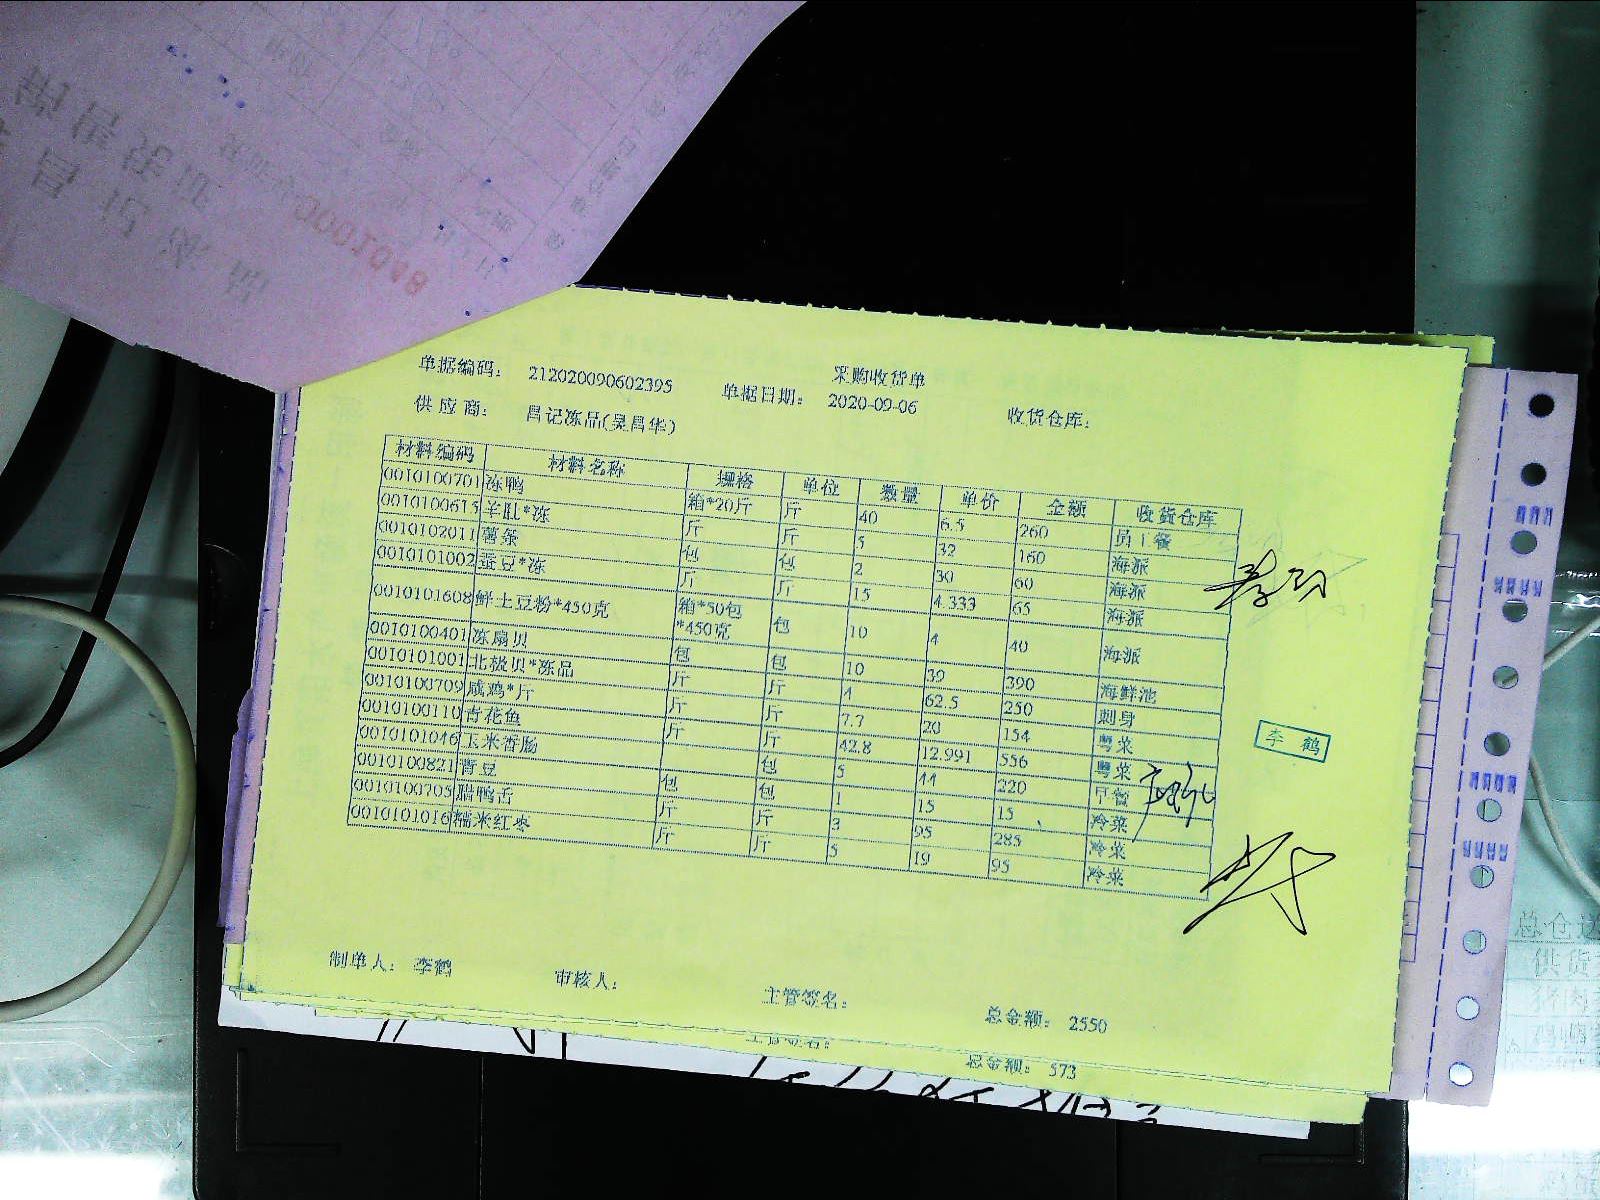 采购收货单
单据编码： 212020090602395 单据日期： 2020-09-06 收货仓库：
供应商： 昌记冻品(吴昌华)
材料编码 材料名称 规格 单位 数量 单价 金额 收货仓库
0010100701 冻鸭 箱*20斤 斤 40 6.5 260 员工餐
0010100615 羊肚*冻 斤 斤 5 32 160 海派
0010102011 薯条 包 包 2 30 60 海派
0010101002 蚕豆*冻 斤 斤 15 4.333 65 海派
0010101608 鲜土豆粉*450克 箱*50包*450克 包 10 4 40 海派
0010100401 冻扇贝 包 包 10 39 390 海鲜池
0010101001 北极贝*冻品 斤 斤 4 62.5 250 刺身
0010100709 咸鸡*斤 斤 斤 7.7 20 154 粤菜
0010100110 青花鱼 斤 斤 42.8 12.991 556 粤菜
0010101046 玉米香肠 包 5 44 220 早餐
0010100821 青豆 包 包 1 15 15 冷菜
0010100705 腊鸭舌 斤 斤 3 95 285 冷菜
0010101016 糯米红枣 斤 斤 5 19 95 冷菜
李鹤
制单人： 李鹤 审核人： 主管签名： 总金额： 2550
主管签名： 总金额： 573
总仓送
供货